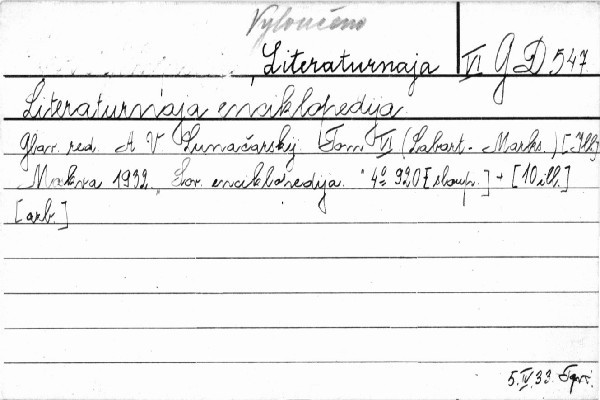 Vyloučeno
Literaturnaja VI GD 547
Literaturnaja enciklopedija
Glav. red. A V Lunačarskij. Tom VI (Labart - Marks.) [Ill]
Moskva 1932 "Sov. enciklopedija." 4° 920 [sloup.] + [10 ill.]
[arb.]
5.IV.33.